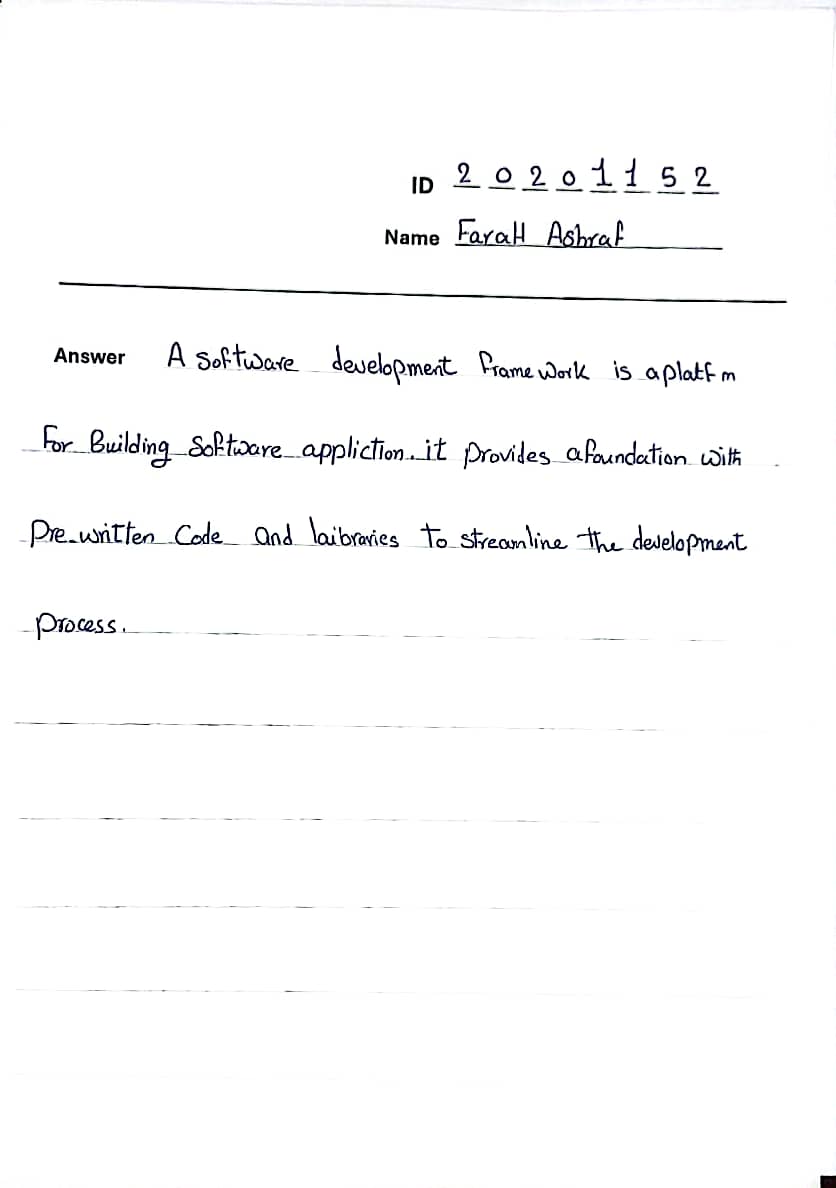 ID 2 0 2 0 1 1 5 2
Name FaraH Ashraf
Answer A software development framework is a platf m
For Building Software appliction. it provides a foundation with
Pre-written Code and laibraries to streamline the development
process.